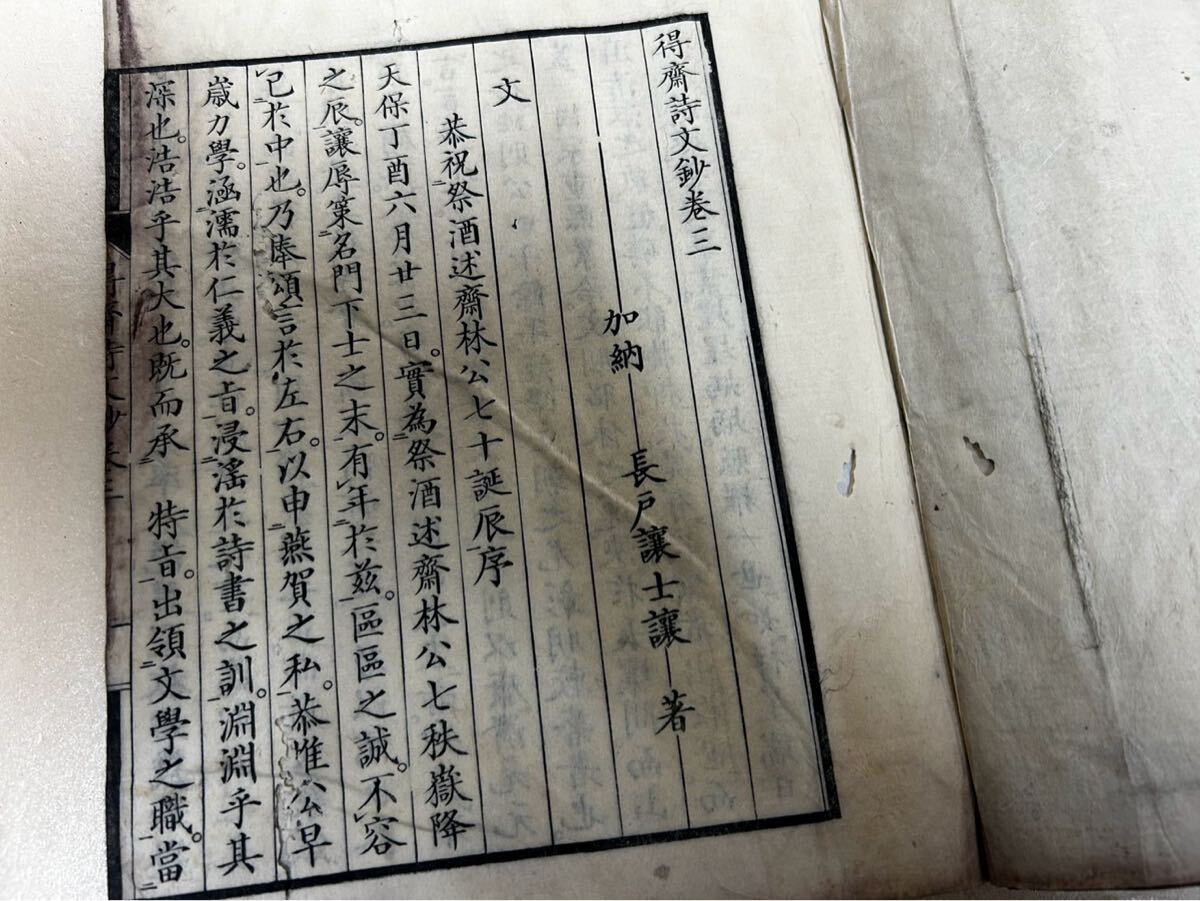 得齋詩文鈔卷三
加納 長戸讓士讓 著
文
恭祝祭酒述齋林公七十誕辰序
天保丁酉六月廿三日。實為祭酒述齋林公七秩嶽降
之辰。讓辱策名門下士之末。有年於茲。區區之誠。不容
已於中也。乃奉頌言於左右。以申燕賀之私。恭惟公早
歲力學。涵濡於仁義之旨。浸淫於詩書之訓。淵淵乎其
深也。浩浩乎其大也。既而承 特旨。出領文學之職。當